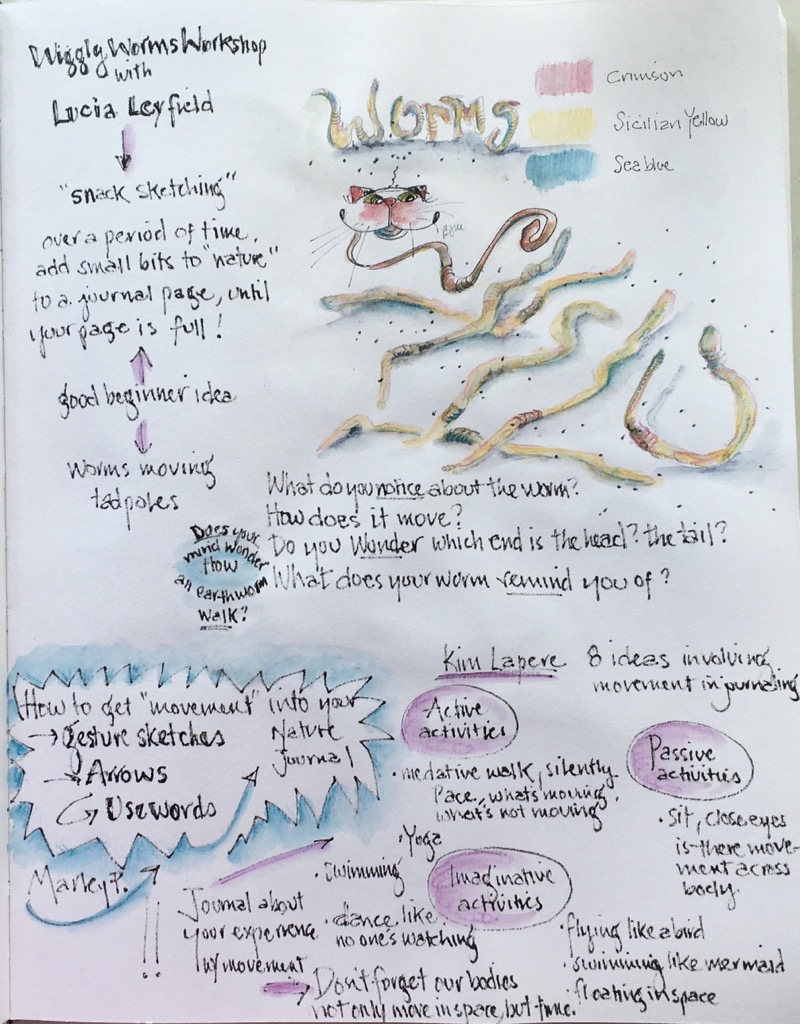 Wiggly Worms Workshop
with
Lucia Leyfield
"snack sketching"
over a period of time,
add small bits to "nature"
to a journal page, until
your page is full!
good beginner idea
worms moving
tadpoles
Worms
Crimson
Sicilian Yellow
Sea blue
What do you notice about the worm?
How does it move?
Do you Wonder which end is the head? the tail?
What does your worm remind you of?
Does your
mind wonder
How
an earthworm
walk?
How to get "movement" into your
Nature
Journal
→ Gesture sketches
→ Arrows
Use words
Marley P.
!!
Kim Lapere 8 ideas involving
movement in journaling
Active
activities
• medative walk, silently
Pace, what's moving
what's not moving
• Yoga
• swimming
• dance like
no one's watching
Passive
activities
• sit, close eyes
is there move-
ment across
body.
Imaginative
activities
• flying like a bird
• swimming like mermaid
• floating in space
Journal about
your experience
w/ movement
Don't forget our bodies
not only move in space, but time.